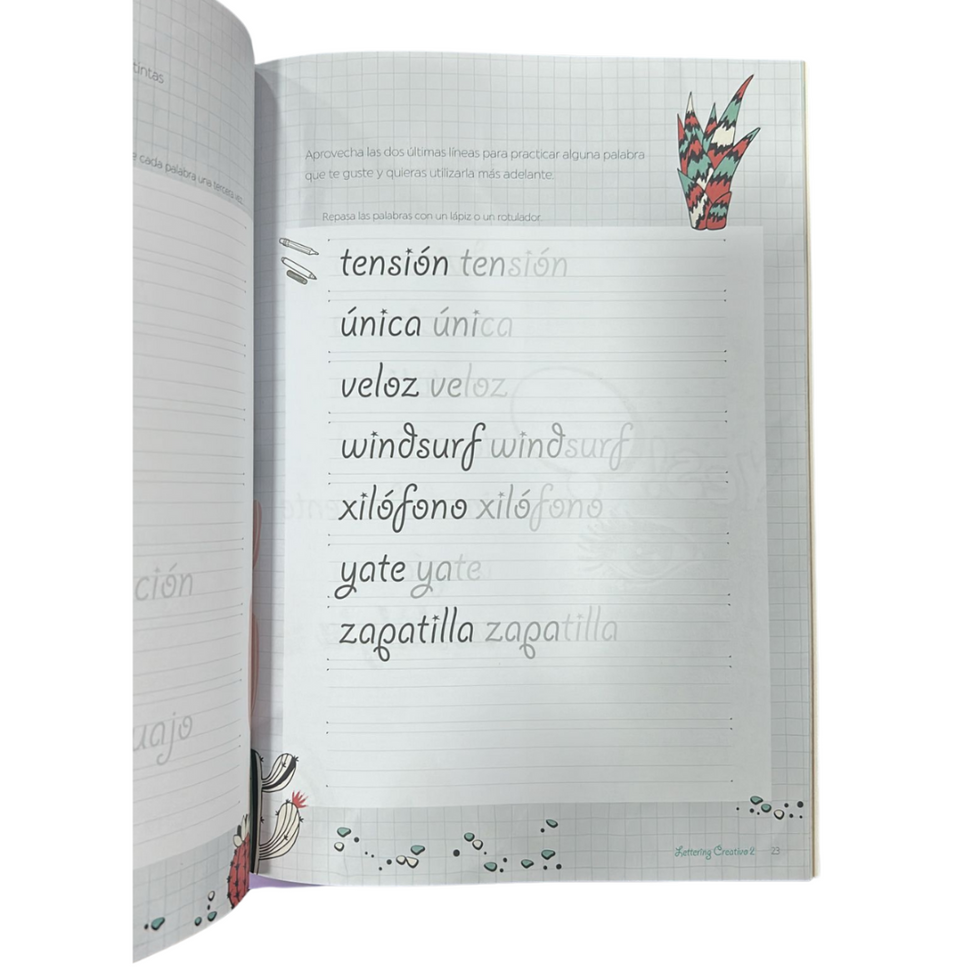 tintas
cada palabra una tercera vez.
ción
uajo
Aprovecha las dos últimas líneas para practicar alguna palabra
que te guste y quieras utilizarla más adelante.
Repasa las palabras con un lápiz o un rotulador.
tensión tensión
única única
veloz veloz
windsurf windsurf
xilófono xilófono
yate yate
zapatilla zapatilla
Lettering Creativo 2 23